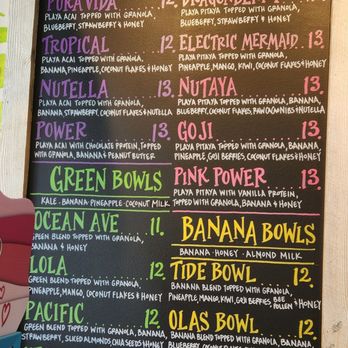 PURA VIDA 12.
PLAYA ACAI TOPPED WITH GRANOLA,
BLUEBERRY, STRAWBERRY & HONEY
TROPICAL 12.
PLAYA ACAI TOPPED WITH GRANOLA,
BANANA, PINEAPPLE, COCONUT FLAKES & HONEY
NUTELLA 13.
PLAYA ACAI TOPPED WITH GRANOLA,
BANANA, STRAWBERRY, COCONUT FLAKES & NUTELLA
POWER 13.
PLAYA ACAI WITH CHOCOLATE PROTEIN, TOPPED
WITH GRANOLA, BANANA & PEANUT BUTTER
GREEN BOWLS
KALE · BANANA · PINEAPPLE · COCONUT MILK
OCEAN AVE 11.
GREEN BLEND TOPPED WITH GRANOLA,
BANANA & HONEY
LOLA 12.
GREEN BLEND TOPPED WITH GRANOLA,
PINEAPPLE, MANGO, COCONUT FLAKES & HONEY
PACIFIC 12.
GREEN BLEND TOPPED WITH GRANOLA, BANANA,
STRAWBERRY, SLICED ALMONDS, CHIA SEEDS & HONEY
PLAYA PITAYA TOPPED WITH GRANOLA,
BLUEBERRY, STRAWBERRY & HONEY
ELECTRIC MERMAID 13.
PLAYA PITAYA TOPPED WITH GRANOLA,
PINEAPPLE, MANGO, KIWI, COCONUT FLAKES & HONEY
NUTAYA 13.
PLAYA PITAYA TOPPED WITH GRANOLA, BANANA,
BLUEBERRY, COCONUT FLAKES, RAW CACAO NIBS & NUTELLA
GOJI 13.
PLAYA PITAYA TOPPED WITH GRANOLA, BANANA,
PINEAPPLE, GOJI BERRIES, COCONUT FLAKES & HONEY
PINK POWER 13.
PLAYA PITAYA WITH VANILLA PROTEIN,
TOPPED WITH GRANOLA, BANANA & HONEY
BANANA BOWLS
BANANA · HONEY · ALMOND MILK
TIDE BOWL 12.
BANANA BLEND TOPPED WITH GRANOLA,
PINEAPPLE, MANGO, KIWI, GOJI BERRIES, BEE POLLEN & HONEY
OLAS BOWL 12.
BANANA BLEND TOPPED WITH GRANOLA, BANANA